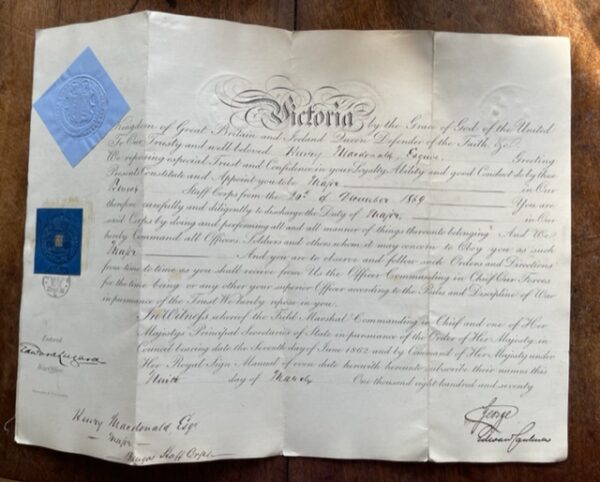 Victoria by the Grace of God of the United
Kingdom of Great Britain and Ireland Queen Defender of the Faith &c.
To Our Trusty and well beloved Henry Macdonald, Esquire Greeting
We reposing especial Trust and Confidence in your Loyalty, Ability and good Conduct do by these
Presents Constitute and Appoint you to be Major in Our
Staff Corps from the of 1869 You are
therefore carefully and diligently to discharge the Duty of Major in our
said Corps by doing and performing all and all manner of things thereunto belonging And We
hereby Command all Officers Soldiers and others whom it may concern to Obey you as such
Major And you are to observe and follow such Orders and Directions
from time to time as you shall receive from Us the Officer Commanding in Chief Our Forces
for the time being or any other your superior Officer according to the Rules and Discipline of War
in pursuance of the Trust We hereby repose in you.
In Witness whereof the Field Marshal Commanding in Chief and one of Her
Majesty's Principal Secretaries of State in pursuance of the Order of Her Majesty in
Council bearing date the Seventh day of June 1862 and by Command of Her Majesty under
Her Royal Sign Manual of even date herewith hereunto subscribe their names this
Ninth day of March One thousand eight hundred and seventy
Entered
Edward Lugard
War Office
George
Henry Macdonald Esqr
Major
Bengal Staff Corps